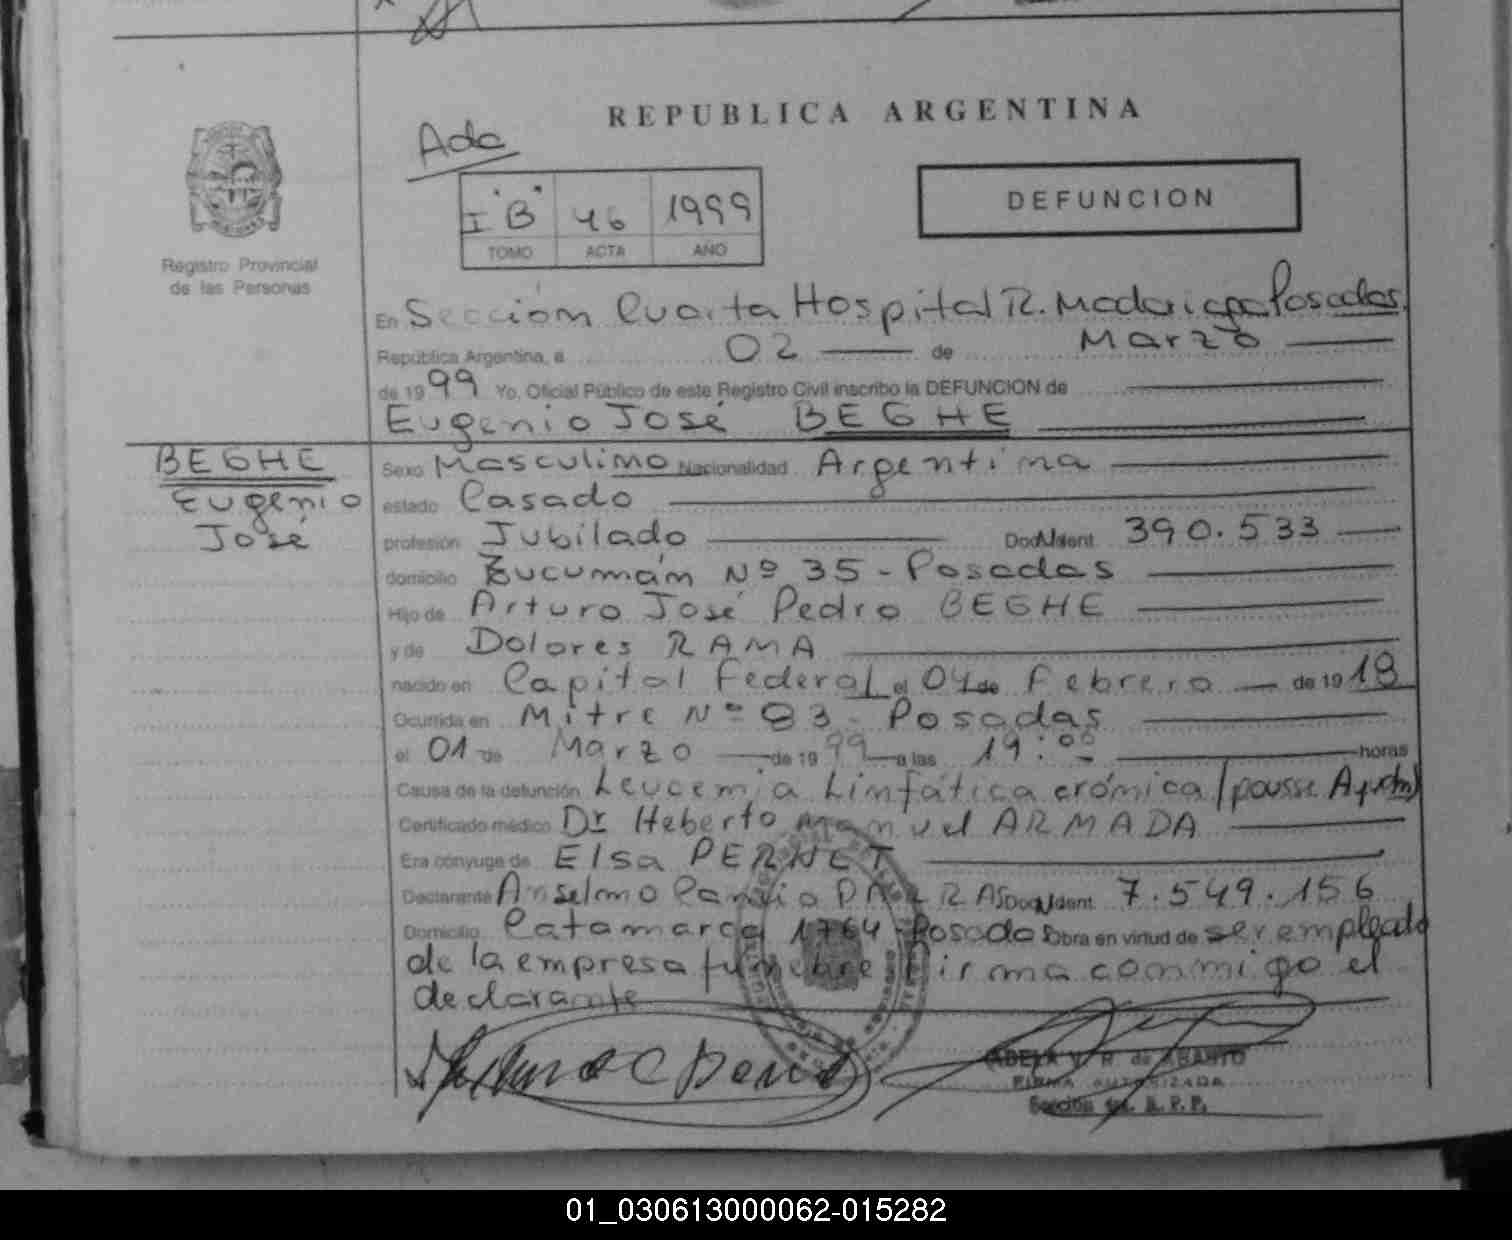 REPUBLICA ARGENTINA
Ada
I "B" 46 1999
TOMO ACTA AÑO
DEFUNCION
Registro Provincial
de las Personas
En Sección Cuarta Hospital R. Madariaga Posadas.
República Argentina, a 02 de Marzo
de 1999 Yo, Oficial Público de este Registro Civil inscribo la DEFUNCION de
Eugenio José BEGHE
BEGHE
Eugenio
José
Sexo Masculino Nacionalidad Argentina
estado Casado
profesión Jubilado Doc. Ident. 390.533
domicilio Tucumán Nº 35 - Posadas
Hijo de Arturo José Pedro BEGHE
y de Dolores RAMA
nacido en Capital Federal el 04 de Febrero de 1918
Ocurrida en Mitre Nº 83 - Posadas
el 01 de Marzo de 1999 a las 19:00 horas
Causa de la defunción Leucemia Linfática crónica
Certificado médico Dr Heberto Manuel ARMADA
Era cónyuge de Elsa PERNET
Declarante Anselmo Doc. Ident. 7.549.156
Domicilio Catamarca 1764 Posadas Obra en virtud de ser empleado
de la empresa fúnebre Firma conmigo el
declarante
FIRMA AUTORIZADA
01_030613000062-015282